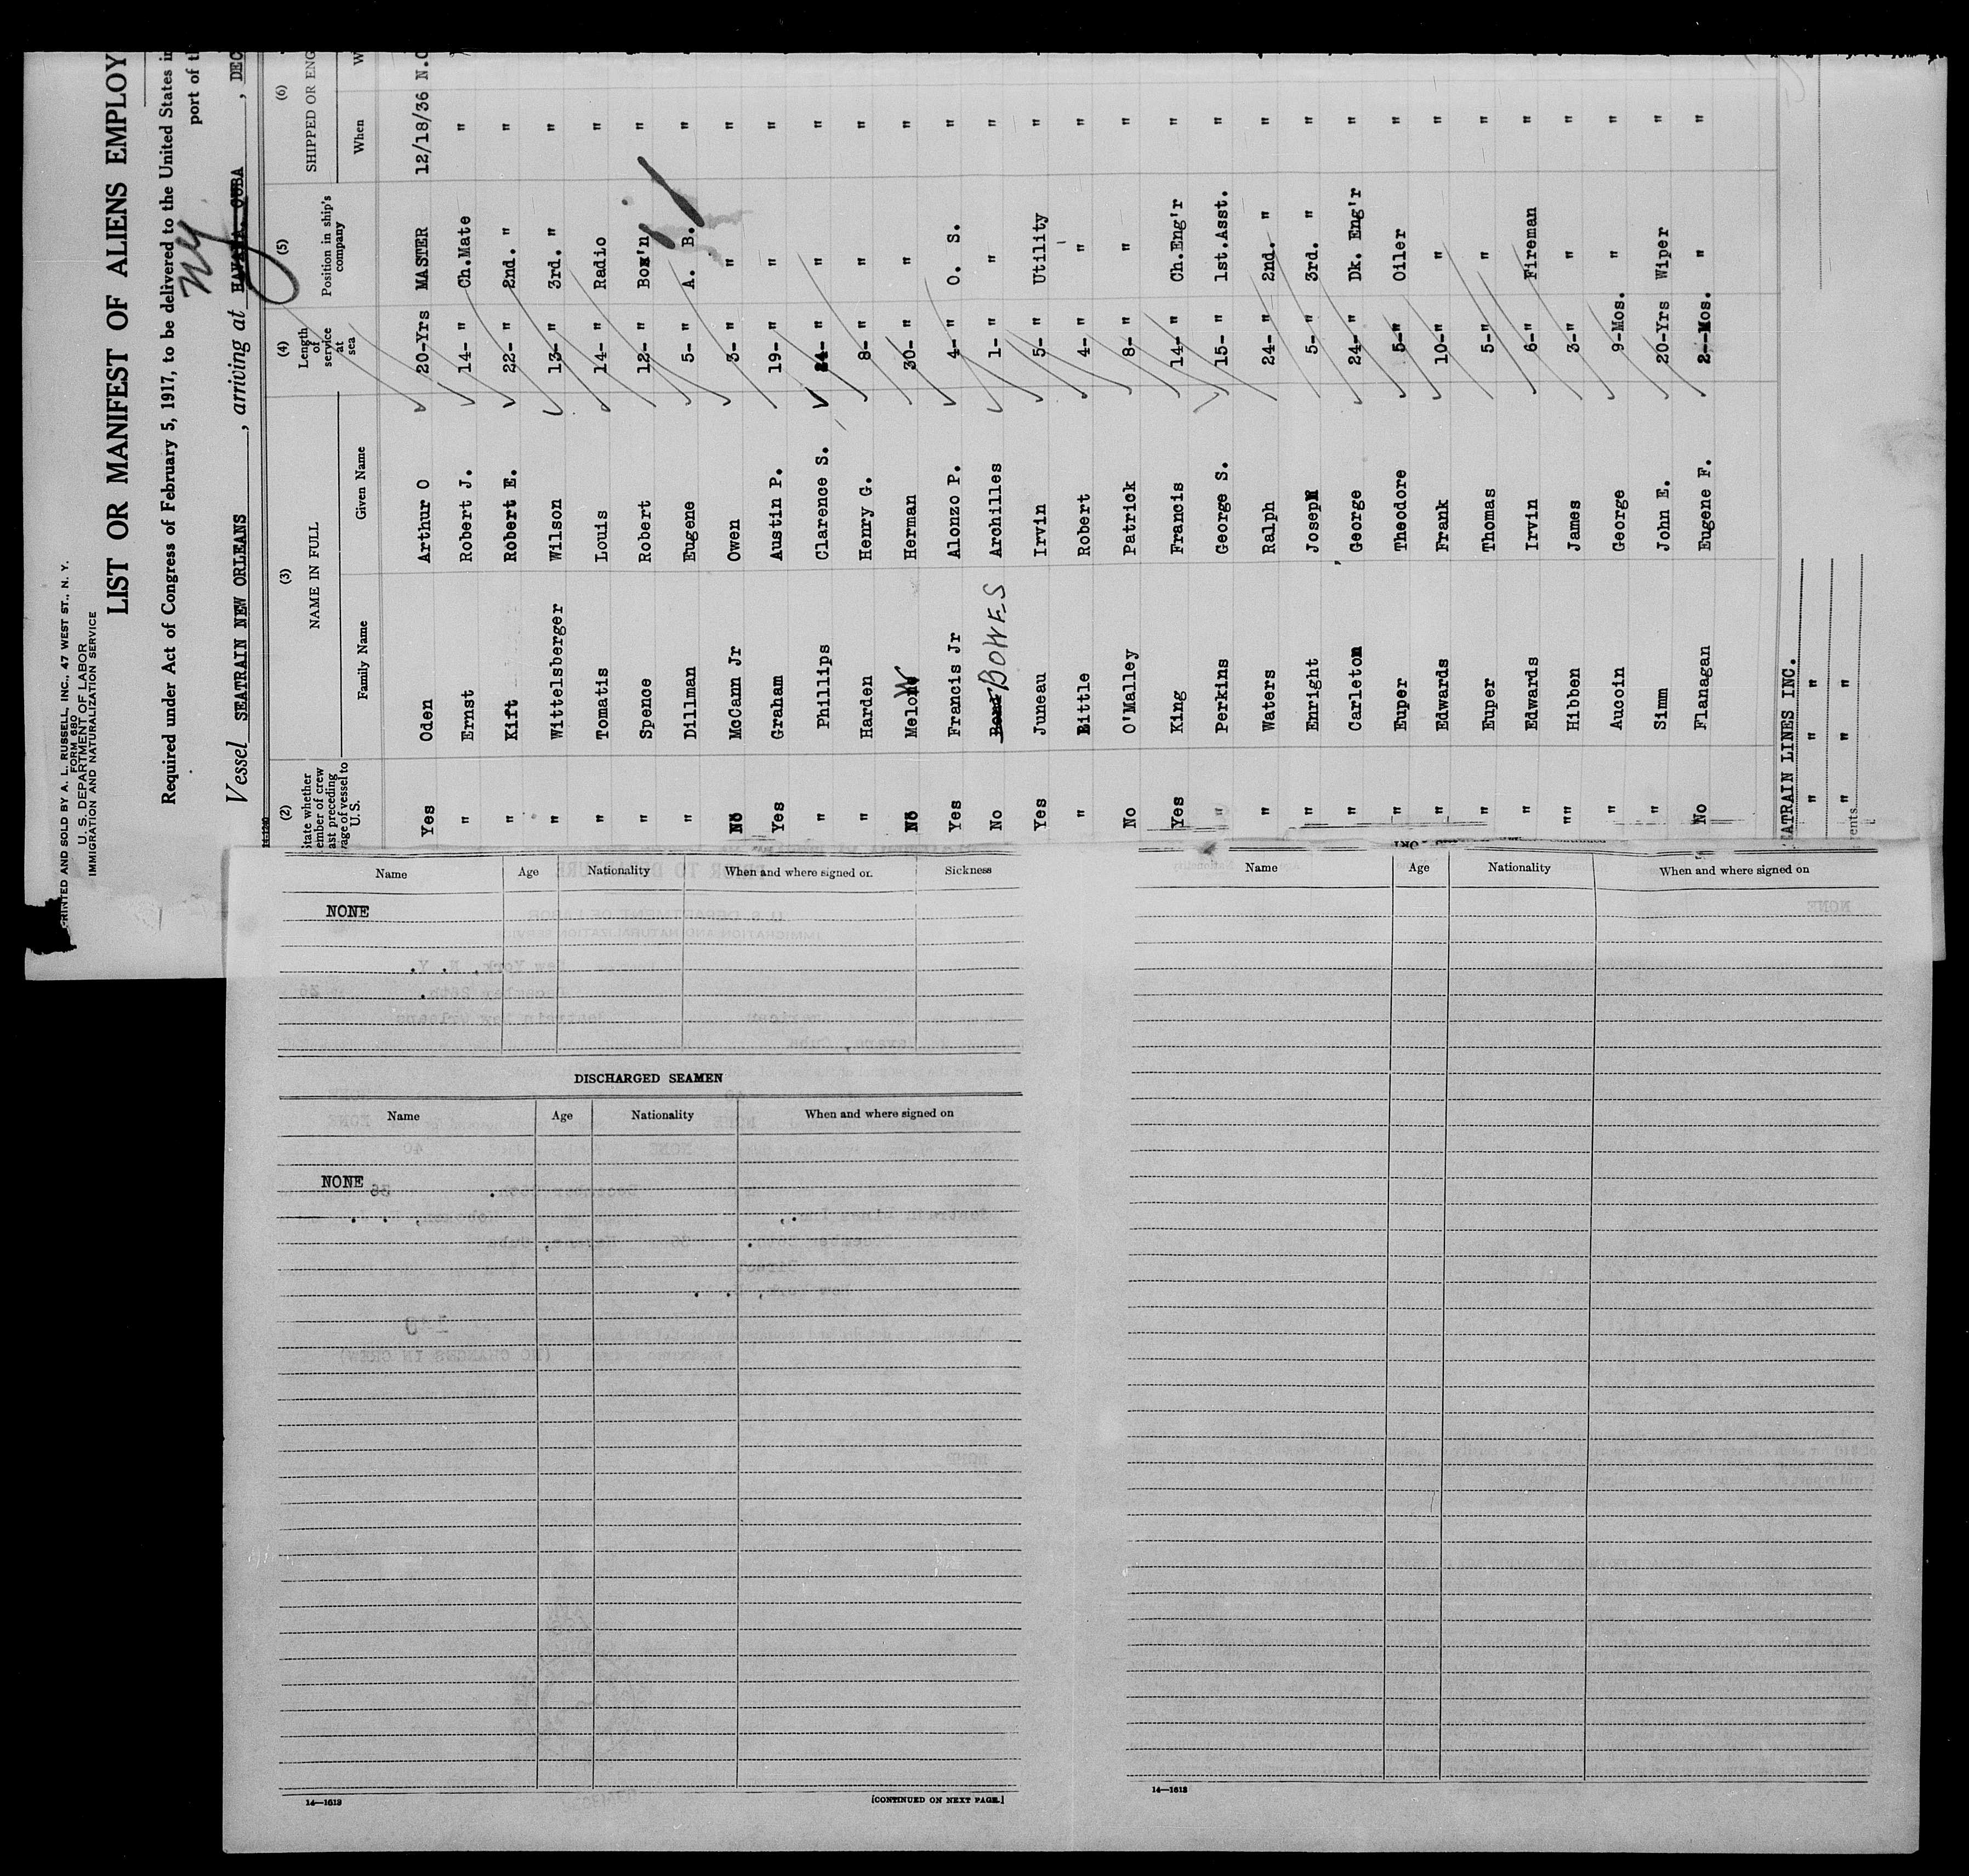 PRINTED AND SOLD BY A. L. RUSSELL, INC., 47 WEST ST., N. Y.
FORM 680
U. S. DEPARTMENT OF LABOR
IMMIGRATION AND NATURALIZATION SERVICE
LIST OR MANIFEST OF ALIENS EMPLOY
Required under Act of Congress of February 5, 1917, to be delivered to the United States
port of
Vessel SEATRAIN NEW ORLEANS, arriving at HAVANA, CUBA NY, DEC
(2) (3) (4) (5) (6)
NAME IN FULL Length of service at sea Position in ship's company SHIPPED OR ENG
U. S. Family Name Given Name When
Yes Oden Arthur O 20-Yrs MASTER 12/18/36 N.O
" Ernst Robert J. 14- " Ch.Mate "
" Kift Robert E. 22- " 2nd. " "
" Wittelsberger Wilson 13- " 3rd. " "
" Tomatis Louis 14- " Radio "
" Spence Robert 12- " Bos'n "
" Dillman Eugene 5- " A. B. "
No McCann Jr Owen 3- " " "
Yes Graham Austin P. 19- " " "
" Phillips Clarence S. 24- " " "
" Harden Henry G. 8- " " "
No Herman 30- " " "
Yes Francis Jr Alonzo P. 4- " O. S. "
No BOWES Archilles 1- " " "
Yes Juneau Irvin 5- " Utility "
" Bittle Robert 4- " " "
No O'Malley Patrick 8- " " "
Yes King Francis 14- " Ch.Eng'r "
" Perkins George S. 15- " 1st.Asst. "
" Waters Ralph 24- " 2nd. " "
" Enright Joseph 5- " 3rd. " "
" Carleton George 24- " Dk. Eng'r "
" Euper Theodore 5-" Oiler "
" Edwards Frank 10-" " "
" Euper Thomas 5-" " "
" Edwards Irvin 6-" Fireman "
"" Hibben James 3-" " "
" Aucoin George 9-Mos. " "
" Simm John E. 20-Yrs Wiper "
No Flanagan Eugene F. 2--Mos. " "
SEATRAIN LINES INC.
" " "
" " "
Name Age Nationality When and where signed on Sickness
NONE
DISCHARGED SEAMEN
Name Age Nationality When and where signed on
NONE
14—1613 [CONTINUED ON NEXT PAGE.]
Name Age Nationality When and where signed on
14—1613